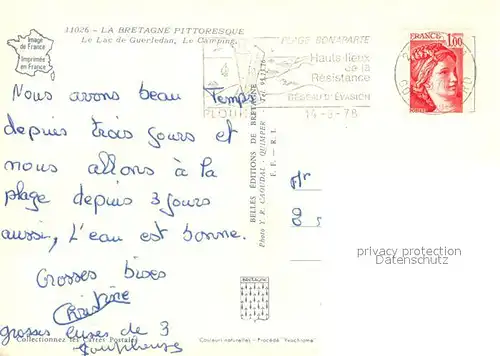 11026 - LA BRETAGNE PITTORESQUE
Le Lac de Guerledan, Le Camping.
Image
de France
Imprimée
en France
PLAGE BONAPARTE
Hauts lieux
de la
Résistance
RESEAU D'ÉVASION
14-8-78
FRANCE
1,00
Nous avons beau Temps
depuis trois jours et
nous allons à la
plage depuis 3 jours
aussi, L'eau est bonne.
Grosses bises
Christine
grosses bises de 3
BELLES ÉDITIONS DE BRETAGNE
Photo Y. R. CAOUDAL - QUIMPER
E. F. - R. I.
Mr
privacy protection
Datenschutz
BRETAGNE
Collectionnez les Cartes Postales
Couleurs naturelles - Procédé